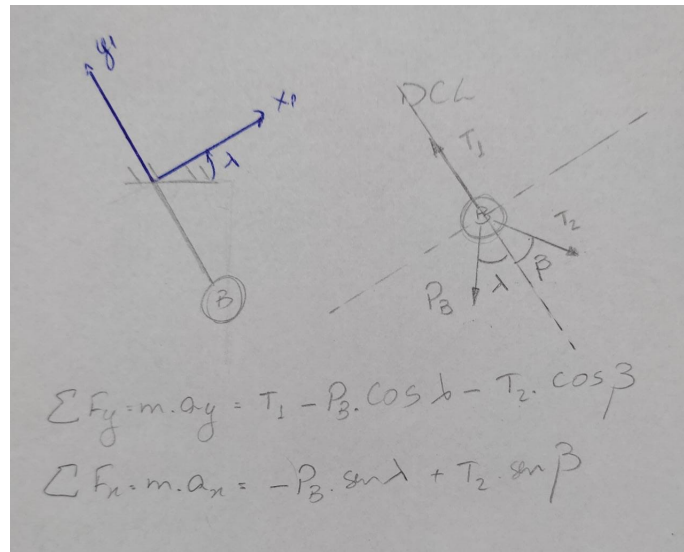 y1
x1
λ
B
DCL
T1
B
T2
PB
λ
β
ΣFy=m.ay = T1 - PB.cos λ - T2.cosβ
ΣFx=m.ax = -PB.sen λ + T2.senβ